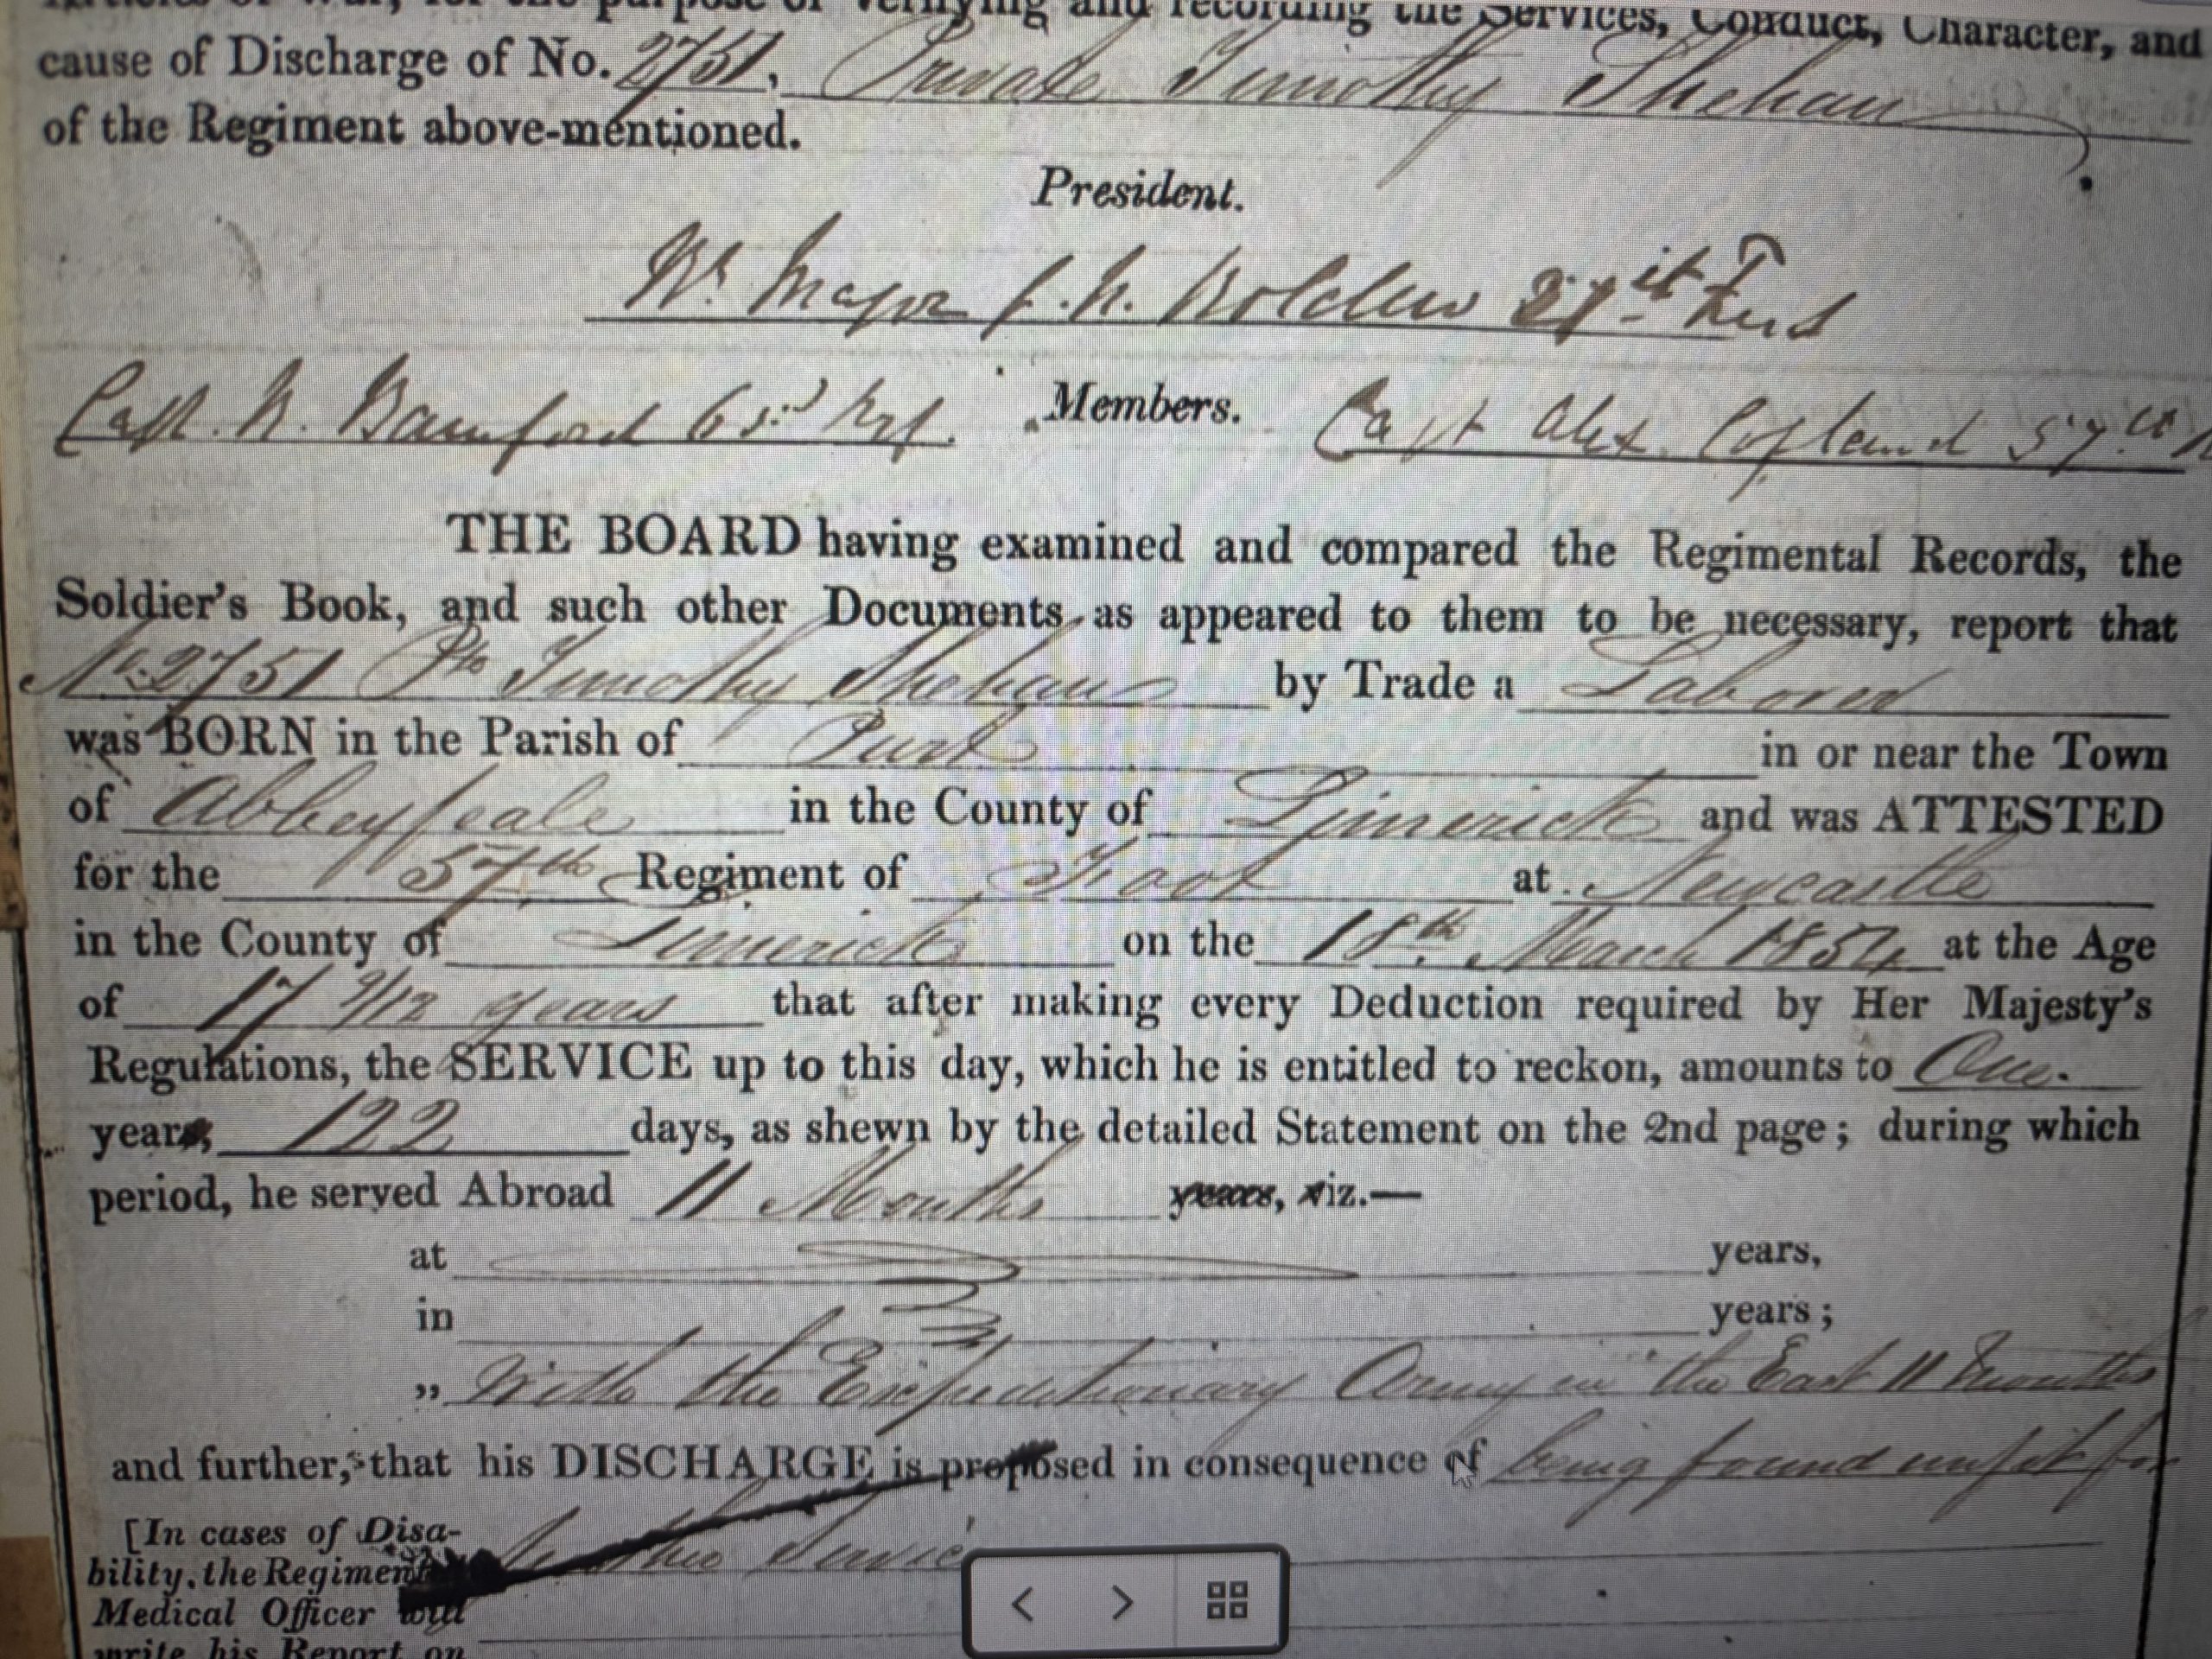 verifying and recording the Services, Conduct, Character, and
cause of Discharge of No. 2751, Private Timothy Shehan
of the Regiment above-mentioned.
President.
Major
Capt. Bamford 63rd Members. Capt Alex Copland 57th
THE BOARD having examined and compared the Regimental Records, the
Soldier's Book, and such other Documents as appeared to them to be necessary, report that
No. 2751 Pte Timothy Shehan by Trade a
was BORN in the Parish of in or near the Town
of Abbeyfeale in the County of Limerick and was ATTESTED
for the 57th Regiment of Foot at Newcastle
in the County of Limerick on the 18th March 1854 at the Age
of 17 9/12 years that after making every Deduction required by Her Majesty's
Regulations, the SERVICE up to this day, which he is entitled to reckon, amounts to One
years, 122 days, as shewn by the detailed Statement on the 2nd page; during which
period, he served Abroad 11 Months years, viz.—
at years,
in years;
„ With the Expeditionary Army in the East 11 Months
and further, that his DISCHARGE is proposed in consequence of being found unfit for
[In cases of Disa-
bility, the Regiment Service
Medical Officer will
write his Report on